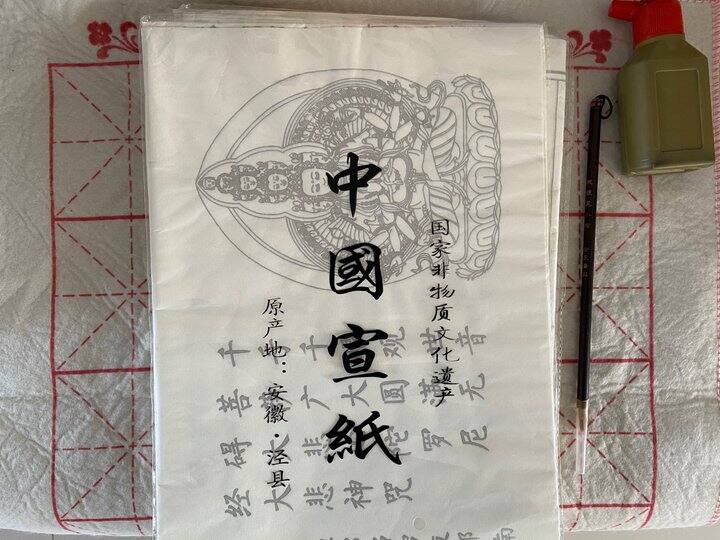 国家非物质文化遗产
中國宣紙
原产地：安徽·泾县
千 千 观世音
菩萨广大圆满无
碍大悲 陀罗尼
经大悲神咒